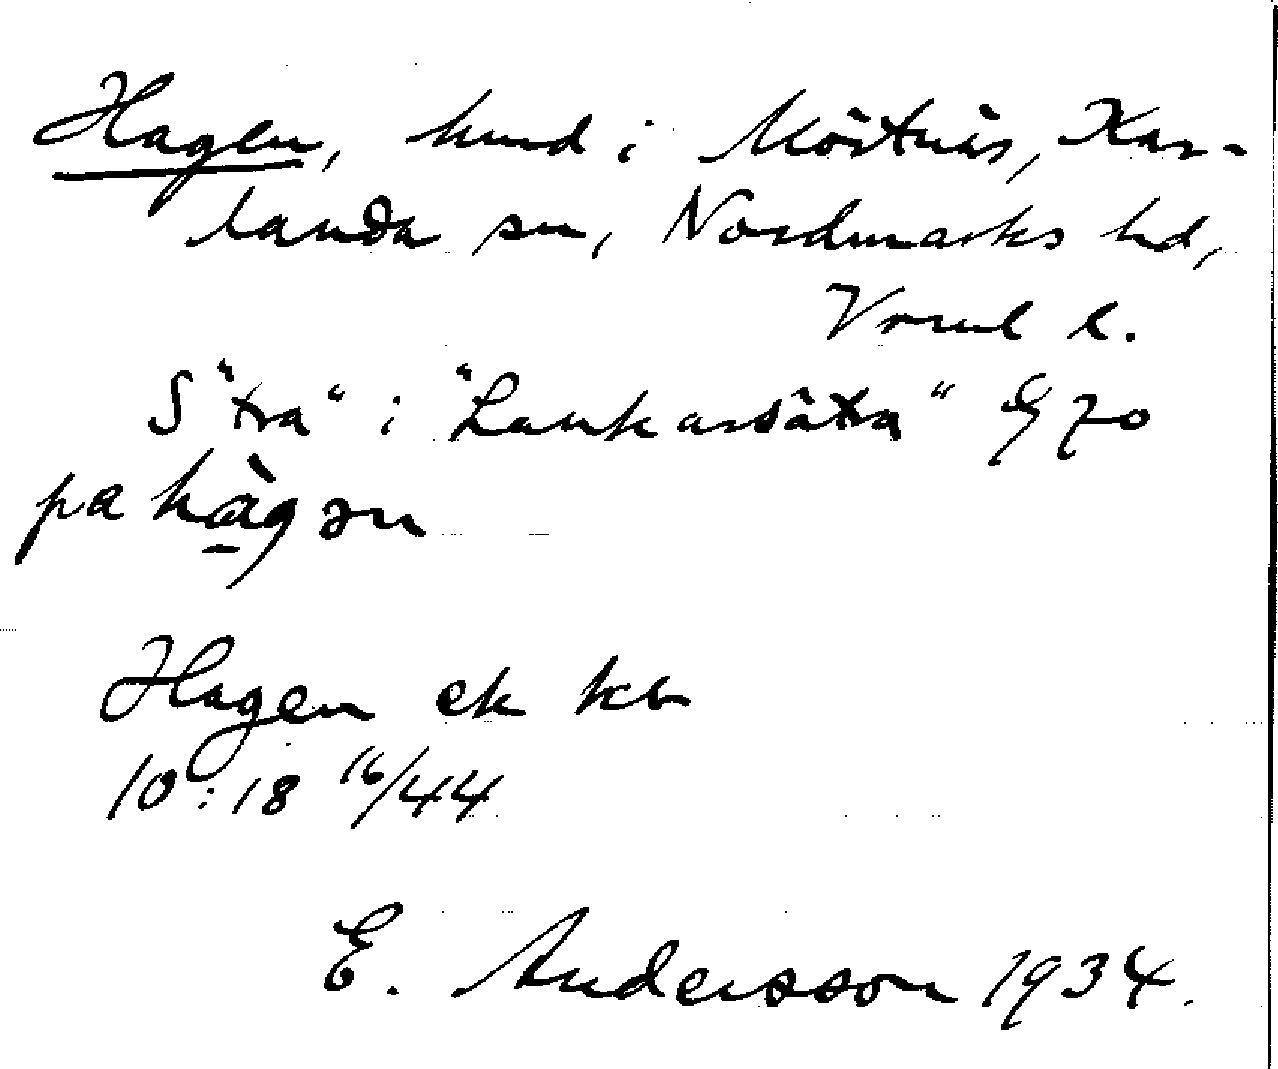 Hagen, hmd i Mörtnäs, Kar-
landa sn, Nordmarks hd,
Vrml l.
S "tra" i "Lankarsätra" Eg 70
pa hàgən
Hagen ek kb
10:18 16/44
E. Andersson 1934.